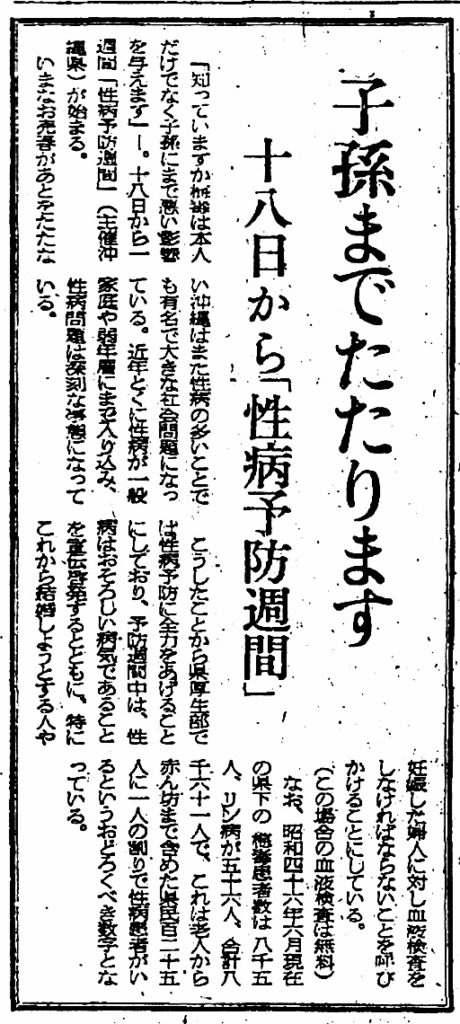 子孫までたたります
十八日から「性病予防週間」
「知っていますか梅毒は本人
だけでなく子孫にまで悪い影響
を与えます」ー。十八日から一
週間「性病予防週間」(主催沖
縄県)が始まる。
いまなお売春があとをたたな
い沖縄はまた性病の多いことで
も有名で大きな社会問題になっ
ている。近年とくに性病が一般
家庭や弱年層にまで入り込み、
性病問題は深刻な事態になって
いる。
こうしたことから県厚生部で
は性病予防に全力をあげること
にしており、予防週間中は、性
病はおそろしい病気であること
を宣伝啓発するとともに、特に
これから結婚しようとする人や
妊娠した婦人に対し血液検査を
しなければならないことを呼び
かけることにしている。
(この場合の血液検査は無料)
なお、昭和四十六年六月現在
の県下の梅毒患者数は八千五
人、リン病が五十六人、合計八
千六十一人で、これは老人から
赤ん坊まで含めた県民百二十五
人に一人の割りで性病患者がい
るというおどろくべき数字とな
っている。